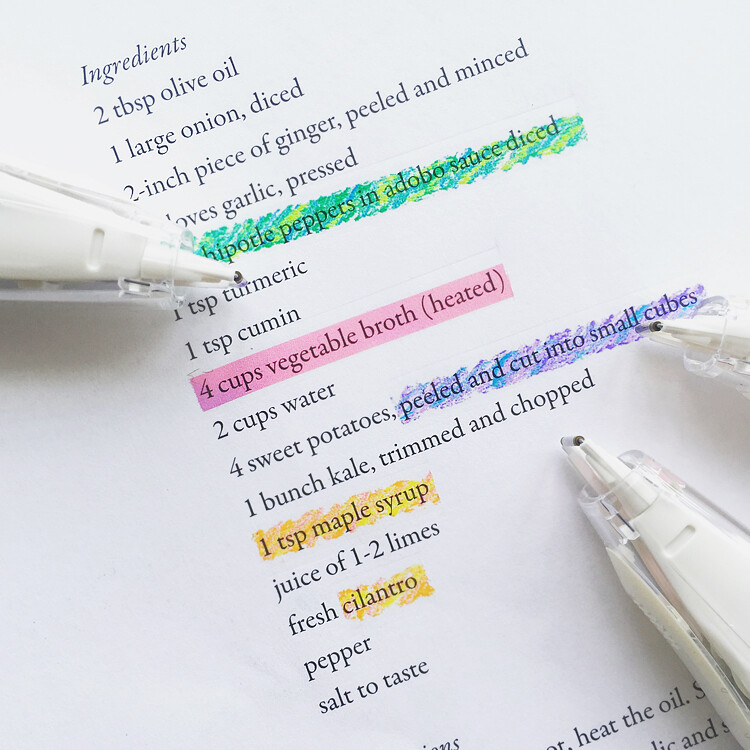 Ingredients
2 tbsp olive oil
1 large onion, diced
2-inch piece of ginger, peeled and minced
garlic, pressed
peppers in adobo sauce diced
1 tsp turmeric
1 tsp cumin
4 cups vegetable broth (heated)
2 cups water
4 sweet potatoes, peeled and cut into small cubes
1 bunch kale, trimmed and chopped
1 tsp maple syrup
juice of 1-2 limes
fresh cilantro
pepper
salt to taste
heat the oil.
and